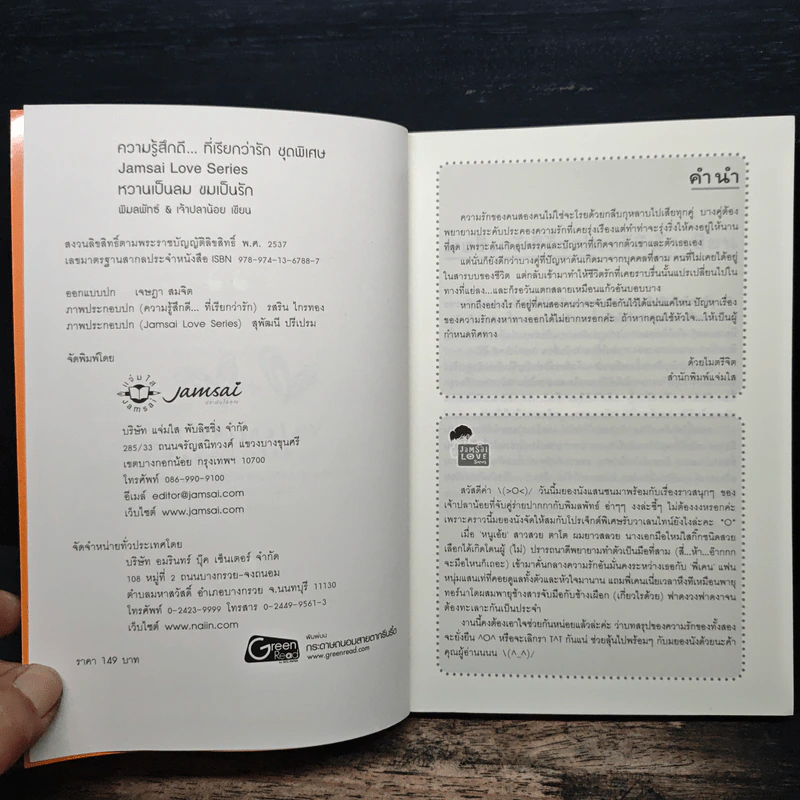 ความรู้สึกดี... ที่เรียกว่ารัก ชุดพิเศษ
Jamsai Love Series
หวานเป็นลม ขมเป็นรัก
พิมลพัทธ์ & เจ้าปลาน้อย เขียน
สงวนลิขสิทธิ์ตามพระราชบัญญัติลิขสิทธิ์ พ.ศ. 2537
เลขมาตรฐานสากลประจำหนังสือ ISBN 978-974-13-6788-7
ออกแบบปก เจษฎา สมจิต
ภาพประกอบปก (ความรู้สึกดี... ที่เรียกว่ารัก) รสริน ไกรทอง
ภาพประกอบปก (Jamsai Love Series) สุพัฒนี ปรีเปรม
จัดพิมพ์โดย
แจ่มใส
Jamsai
Jamsai
บริษัท แจ่มใส พับลิชชิ่ง จำกัด
285/33 ถนนจรัญสนิทวงศ์ แขวงบางขุนศรี
เขตบางกอกน้อย กรุงเทพฯ 10700
โทรศัพท์ 086-990-9100
อีเมล์ editor@jamsai.com
เว็บไซต์ www.jamsai.com
จัดจำหน่ายทั่วประเทศโดย
บริษัท อมรินทร์ บุ๊ค เซ็นเตอร์ จำกัด
108 หมู่ที่ 2 ถนนบางกรวย-จงถนอม
ตำบลมหาสวัสดิ์ อำเภอบางกรวย จ.นนทบุรี 11130
โทรศัพท์ 0-2423-9999 โทรสาร 0-2449-9561-3
เว็บไซต์ www.naiin.com
ราคา 149 บาท
Green Read
พิมพ์บน
กระดาษถนอมสายตากรีนรี้ด
www.greenread.com
คำนำ
ความรักของคนสองคนไม่ใช่จะโรยด้วยกลีบกุหลาบไปเสียทุกคู่ บางคู่ต้อง
พยายามประคับประคองความรักที่เคยรุ่งเรืองแต่ทำท่าจะรุ่งริ่งให้คงอยู่ให้นาน
ที่สุด เพราะดันเกิดอุปสรรคและปัญหาที่เกิดจากตัวเขาและตัวเธอเอง
แต่นั่นก็ยังดีกว่าบางคู่ที่ปัญหาดันเกิดมาจากบุคคลที่สาม คนที่ไม่เคยได้อยู่
ในสารบบของชีวิต แต่กลับเข้ามาทำให้ชีวิตรักที่เคยราบรื่นนั้นแปรเปลี่ยนไปใน
ทางที่แย่ลง...และก็รอวันแตกสลายเหมือนแก้วอันบอบบาง
หากถึงอย่างไร ก็อยู่ที่คนสองคนว่าจะจับมือกันไว้ได้แน่นแค่ไหน ปัญหาเรื่อง
ของความรักคงหาทางออกได้ไม่ยากหรอกค่ะ ถ้าหากคุณใช้หัวใจ...ให้เป็นผู้
กำหนดทิศทาง
ด้วยไมตรีจิต
สำนักพิมพ์แจ่มใส
JAMSAI
LOVE
Series
สวัสดีค่า \(>O<)/ วันนี้มยองนังแสนซนมาพร้อมกับเรื่องราวสนุกๆ ของ
เจ้าปลาน้อยที่จับคู่ร่ายปากกากับพิมลพัทธ์ อ่าๆๆ งงล่ะซี้ๆ ไม่ต้องงงหรอกค่ะ
เพราะคราวนี้มยองนังจัดให้สมกับโปรเจ็กต์พิเศษรับวาเลนไทน์ยังไงล่ะคะ *O*
เมื่อ 'หนูเอ้ย' สาวสวย ตาโต ผมยาวสลวย นางเอกมือใหม่ใสกิ๊กชนิดสวย
เลือกได้เกิดโดนผู้ (ไม่) ปรารถนาดีพยายามทำตัวเป็นมือที่สาม (สี่...ห้า...อ๊ากกก
จะมีมือไหนก็เถอะ) เข้ามาคั่นกลางความรักอันมั่นคงระหว่างเธอกับ 'พี่เคน' แฟน
หนุ่มแสนเท่ที่คอยดูแลทั้งตัวและหัวใจมานาน แถมพี่เคนเนี่ยเวลาหึงทีเหมือนพายุ
ทอร์นาโดผสมพายุช้างสารจับมือกับช้างเผือก (เกี่ยวไรด้วย) ฟาดงวงฟาดงาจน
ต้องทะเลาะกันเป็นประจำ
งานนี้คงต้องเอาใจช่วยกันหน่อยแล้วล่ะค่ะ ว่าบทสรุปของความรักของทั้งสอง
จะยั่งยืน ^O^ หรือจะเลิกรา T^T กันแน่ ช่วยลุ้นไปพร้อมๆ กับมยองนังด้วยนะค้า
คุณผู้อ่านนนน \(^_^)/